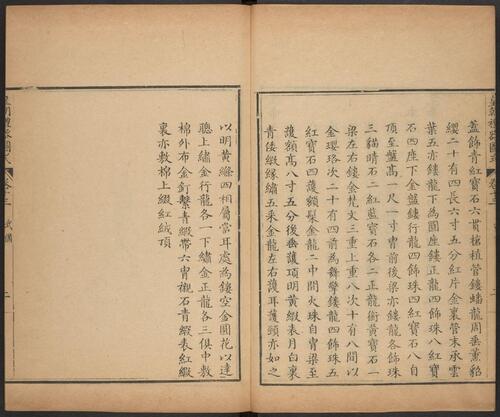 蓋飾青紅寶石六貫槍植管鏤蟠龍周垂薰貂
纓二十有四長六寸五分紅片金裏管末承雲
葉五亦鏤龍下為圓座鏤正龍四飾珠八紅寶
石四座下金盤鏤行龍四飾珠四紅寶石八自
頂至盤高一尺一寸冑前後梁亦鏤龍各飾珠
三貓睛石二紅藍寶石各二正龍銜黃寶石一
梁左右鏤金梵文三重上重八次十有八間以
金瓔珞次二十有四前為舞擎鏤龍四飾珠五
紅寶石四護額鬃金龍二中間火珠自冑梁至
護額高八寸五分後垂護項明黃緞表月白裏
青倭緞緣繡五采金龍左右護耳護頸亦如之
以明黃絛四相屬當耳處為鏤空金圓花以達
聰上繡金行龍各一下繡金正龍各三俱中敷
棉外布金釘繫青緞帶六冑襯石青緞表紅緞
裏亦敷棉上綴紅絨頂